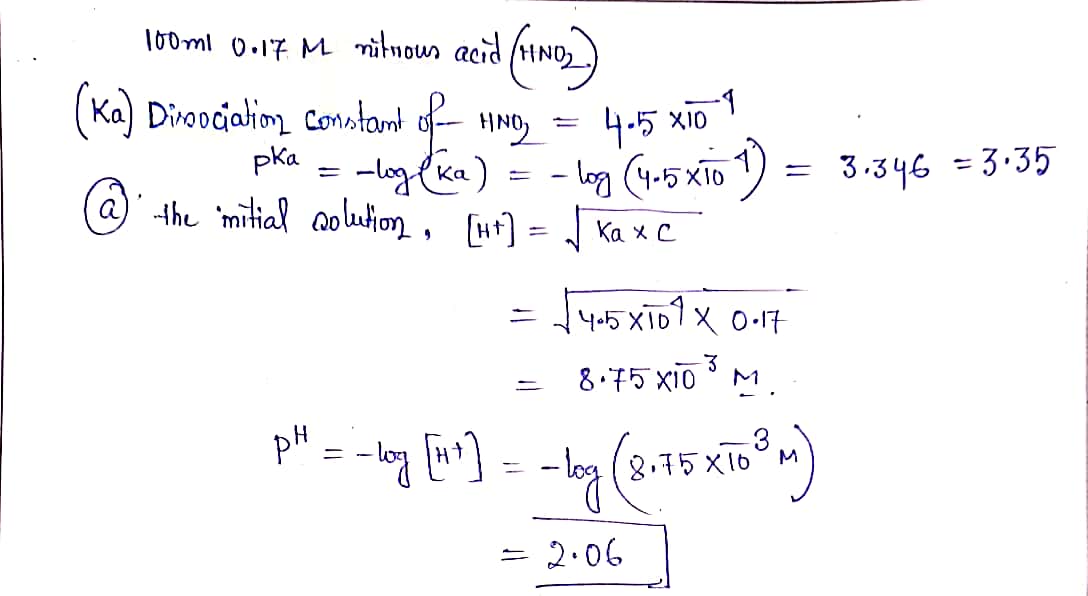 100ml 0.17 M nitrous acid (HNO2)
(Ka) Dissociation constant of HNO2 = 4.5 x10^-4
pKa = -log(Ka) = - log (4.5 x10^-4) = 3.346 = 3.35
(a) the initial solution, [H+] = √Ka x C
= √4.5 x10^-4 x 0.17
= 8.75 x10^-3 M.
pH = -log [H+] = -log (8.75 x10^-3 M)
= 2.06